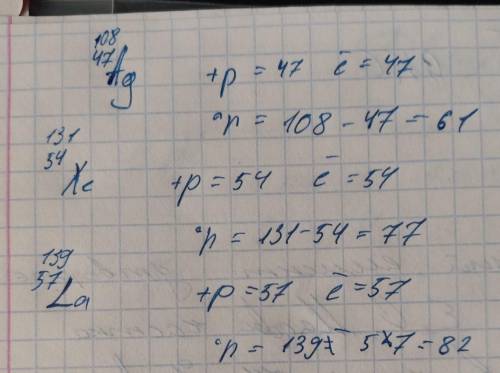 108
47 Ag +p = 47 ē = 47
°n = 108 - 47 = 61
131
54 Xe +p = 54 ē = 54
°n = 131 - 54 = 77
139
57 La +p = 57 ē = 57
°n = 139 - 57 = 82